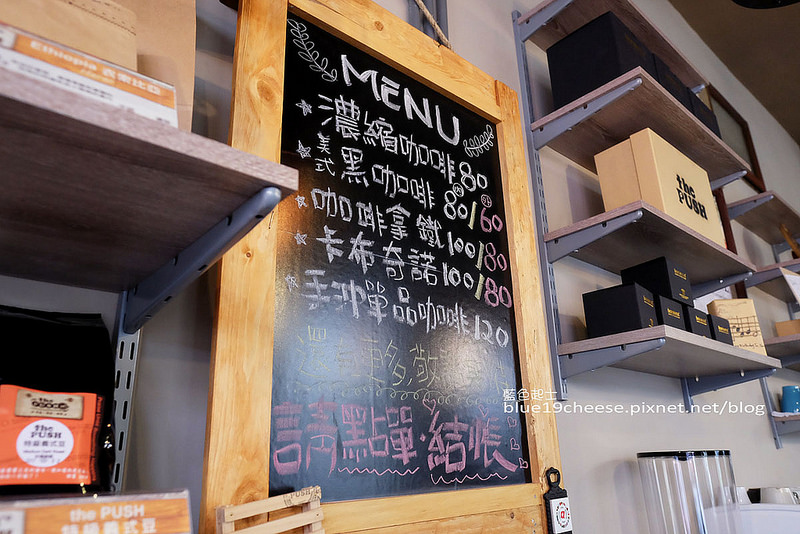 MENU
濃縮咖啡 80
美式黑咖啡 80/60
咖啡拿鐵 100/80
卡布奇諾 100/80
手沖單品咖啡 120
還有更多,敬請
請點單·結帳
Ethiopia
the PUSH
the PUSH
the PUSH
特級義式豆
the PUSH
藍色起士
blue19cheese.pixnet.net/blog